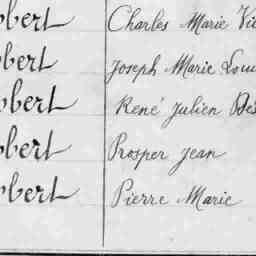 bert Charles Marie Vi
bert Joseph Marie Lou
bert René Julien Des
bert Prosper Jean
bert Pierre Marie